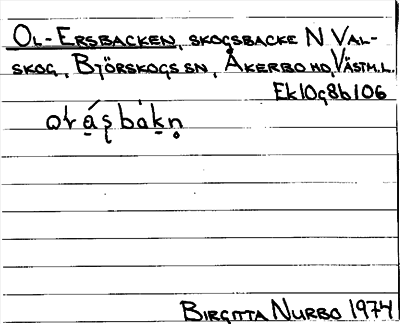 OL-ERSBACKEN, SKOGSBACKE N VAL-
SKOG, BJÖRSKOGS SN, ÅKERBO HD, VÄSTM.L.
Ek10g8b106
BIRGITTA NURBO 1974